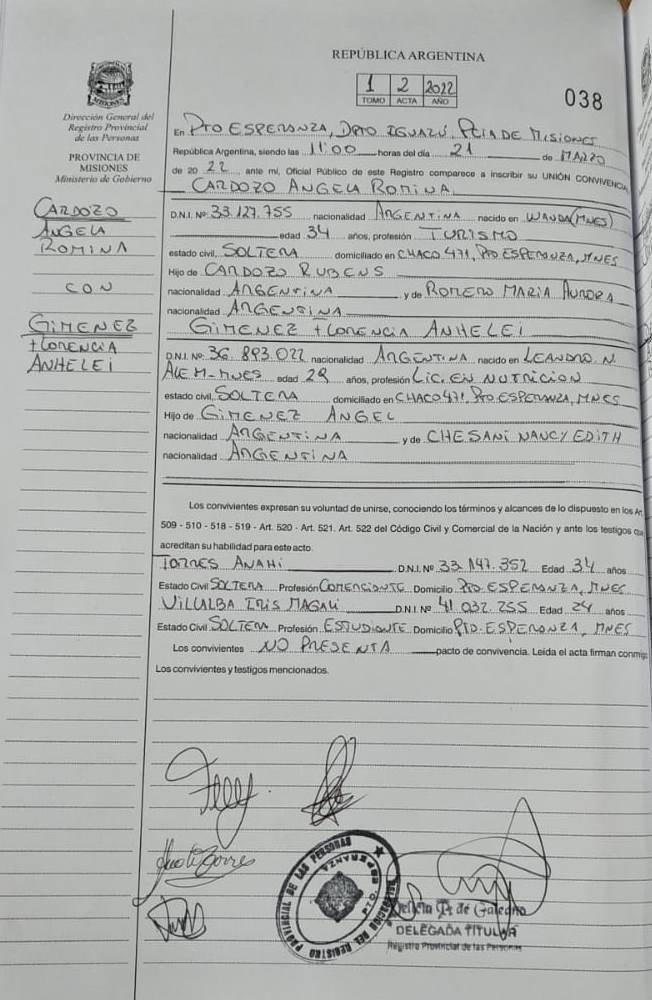 REPÚBLICA ARGENTINA
1 2 2022
TOMO ACTA AÑO
038
Dirección General del
Registro Provincial
de las Personas
PROVINCIA DE
MISIONES
Ministerio de Gobierno
CARDOZO
ANGELA
ROMINA
CON
GIMENEZ
FLORENCIA
ANHELEI
En PTO ESPERANZA, DPTO IGUAZÚ, PCIA DE MISIONES
República Argentina, siendo las 11:00 horas del día 21 de MARZO
de 20 22, ante mí, Oficial Público de este Registro comparece a inscribir su UNIÓN CONVIVENCIA
CARDOZO ANGELA ROMINA
D.N.I. Nº 33.127.755 nacionalidad ARGENTINA nacido en WANDA (MNES)
edad 34 años, profesión TURISMO
estado civil, SOLTERA domiciliado en CHACO 471, PTO ESPERANZA, MNES
Hijo de CARDOZO RUBENS
nacionalidad ARGENTINA y de ROMERO MARIA AURORA
nacionalidad ARGENTINA
GIMENEZ FLORENCIA ANHELEI
D.N.I. Nº 36.893.022 nacionalidad ARGENTINA nacido en LEANDRO N.
ALEM-MNES edad 29 años, profesión LIC. EN NUTRICION
estado civil, SOLTERA domiciliado en CHACO 471, PTO ESPERANZA, MNES
Hijo de GIMENEZ ANGEL
nacionalidad ARGENTINA y de CHESANI NANCY EDITH
nacionalidad ARGENTINA
Los convivientes expresan su voluntad de unirse, conociendo los términos y alcances de lo dispuesto en los Ar
509 - 510 - 518 - 519 - Art. 520 - Art. 521. Art. 522 del Código Civil y Comercial de la Nación y ante los testigos que
acreditan su habilidad para este acto.
TORRES ANAHÍ D.N.I. Nº 33.147.352 Edad 34 años
Estado Civil SOLTERA Profesión COMERCIANTE Domicilio PTO. ESPERANZA, MNES
VILLALBA IRIS MAGALI D.N.I. Nº 41.032.255 Edad 24 años
Estado Civil SOLTERA Profesión ESTUDIANTE Domicilio PTO. ESPERANZA, MNES
Los convivientes NO PRESENTA pacto de convivencia. Leída el acta firman conmigo
Los convivientes y testigos mencionados.
DELEGACION DEL REGISTRO PROVINCIAL DE LAS PERSONAS
ESPERANZA
de Galeano
DELEGADA TITULAR
Registro Provincial de las Personas